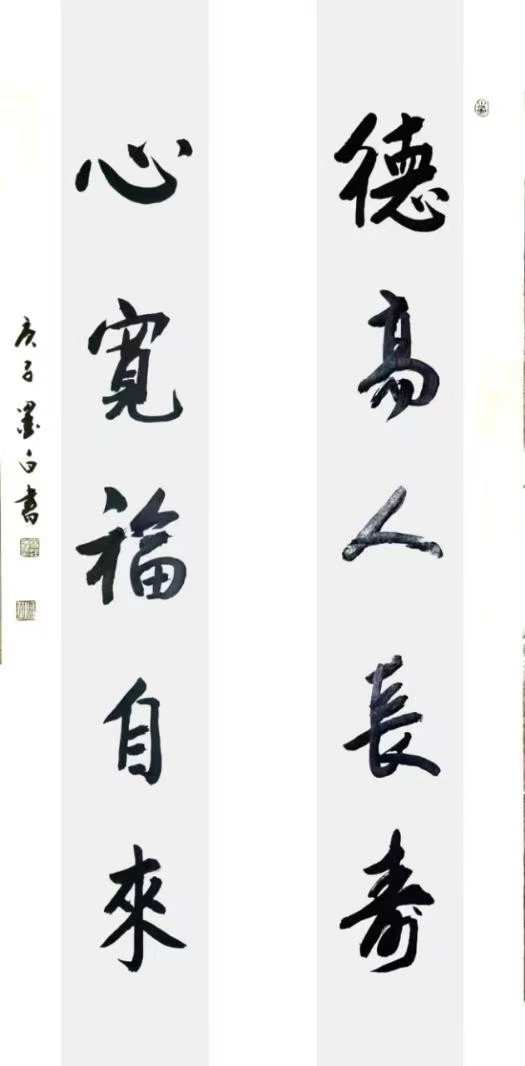 德高人長寿
心寬福自來
庚子墨白書